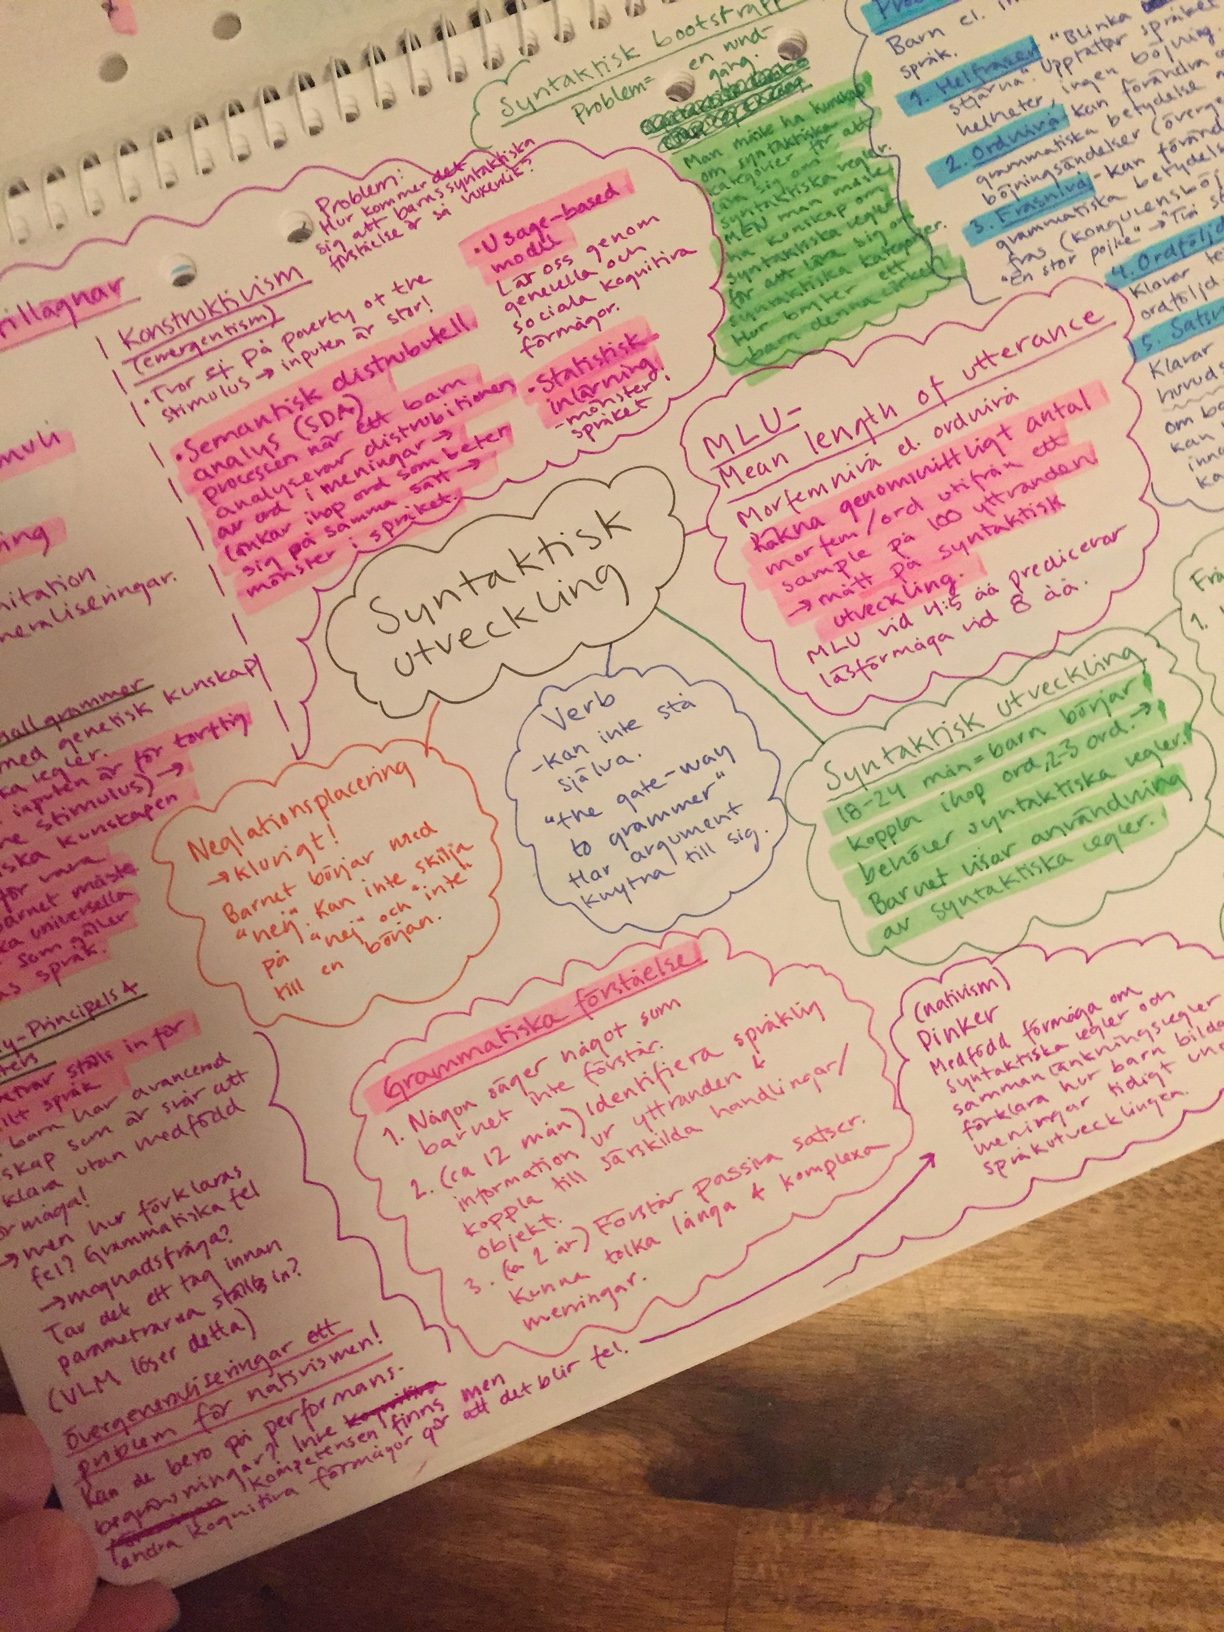 Syntaktisk bootstrapp
Problem= en rund-
gång.
Man måste ha kunskap
om syntaktiska
kategorier för att
lära sig om
syntaktiska regler.
MEN man måste
ha kunskap om
syntaktiska regler
för att lära sig om
syntaktiska kategorier.
Hur bryter ett
barn denna cirkel?
Barn el. in
språk.
1. Helfraser "Blinka
stjärna" Uppfattar språket
helheter, ingen böjning.
2. Ordnivå kan förändra
grammatiska betydelse
böjningsändelser (överge
3. Frasnivå-kan föränd
grammatiska betydels
fras (kongruensböj
"En stor pojke" → "Två st
4. Ordföljd
Klarar te
ordföljd
5. Satsn
Klarar
huvuds
om ba
kan
inn
ka
tillägnar
muli
ning
mitation
neraliseringar.
Problem:
Hur kommer det
sig att barns syntaktiska
förståelse är så vuxenlik?
Konstruktivism
(emergentism)
• Tror ej på Poverty of the
stimulus → inputen är stor!
• Semantisk distrubutell
analys (SDA)
processen när ett barn
analyserar distrubitionen
av ord i meningar →
länkar ihop ord som beter
sig på samma sätt →
mönster i språket.
• Usage-based
modell
Lär oss genom
generella och
sociala kognitiva
förmågor.
• Statistisk
inlärning
-mönster i
språket
Syntaktisk
utveckling
MLU-
Mean length of utterance
Morfemnivå el. ordnivå
Räkna genomsnittligt antal
morfem/ord utifrån ett
sample på 100 yttranden
→ mått på syntaktisk
utveckling.
MLU vid 4:5 åå predicerar
läsförmåga vid 8 åå.
Frå
1.
Syntaktisk utveckling
18-24 mån = barn börjar
koppla ihop ord, 2-3 ord. →
behöver syntaktiska regler.
Barnet visar användning
av syntaktiska regler.
Verb
-Kan inte stå
själva.
"the gate-way
to grammer"
Har argument
knytna till sig.
Neglationsplacering
→ klurigt!
Barnet börjar med
"nej". Kan inte skilja
på "nej" och "inte"
till en början.
sall grammer
med genetisk kunskap
ka regler.
inputen är för torftig
he stimulus) →
iska kunskapen
för vara
Barnet måste
ka universella
som gäller
as språk.
y-Principels &
ters
etrar ställs in för
ilt språk
barn har avancerad
skap som är svår att
klara utan medfödd
rmåga!
→ men hur förklaras
fel? Grammatiska fel
→ mognadsfråga?
Tar det ett tag innan
parametrarna ställs in?
(VLM löser detta)
övergeneraliseringar ett
problem för nativismen!
Kan de bero på performans-
begränsningar? Inte
kompetensen finns men
andra kognitiva förmågor gör att det blir fel.
Grammatiska förståelse
1. Någon säger något som
barnet inte förstår.
2. (ca 12 mån) Identifiera språklig
information ur yttranden &
koppla till särskilda handlingar/
objekt.
3. (ca 2 år) Förstår passiva satser.
Kunna tolka långa & komplexa
meningar.
(nativism)
Pinker
Medfödd förmåga om
syntaktiska regler och
sammanlänkningsregler
förklara hur barn bilda
meningar tidigt und
språkutvecklingen.